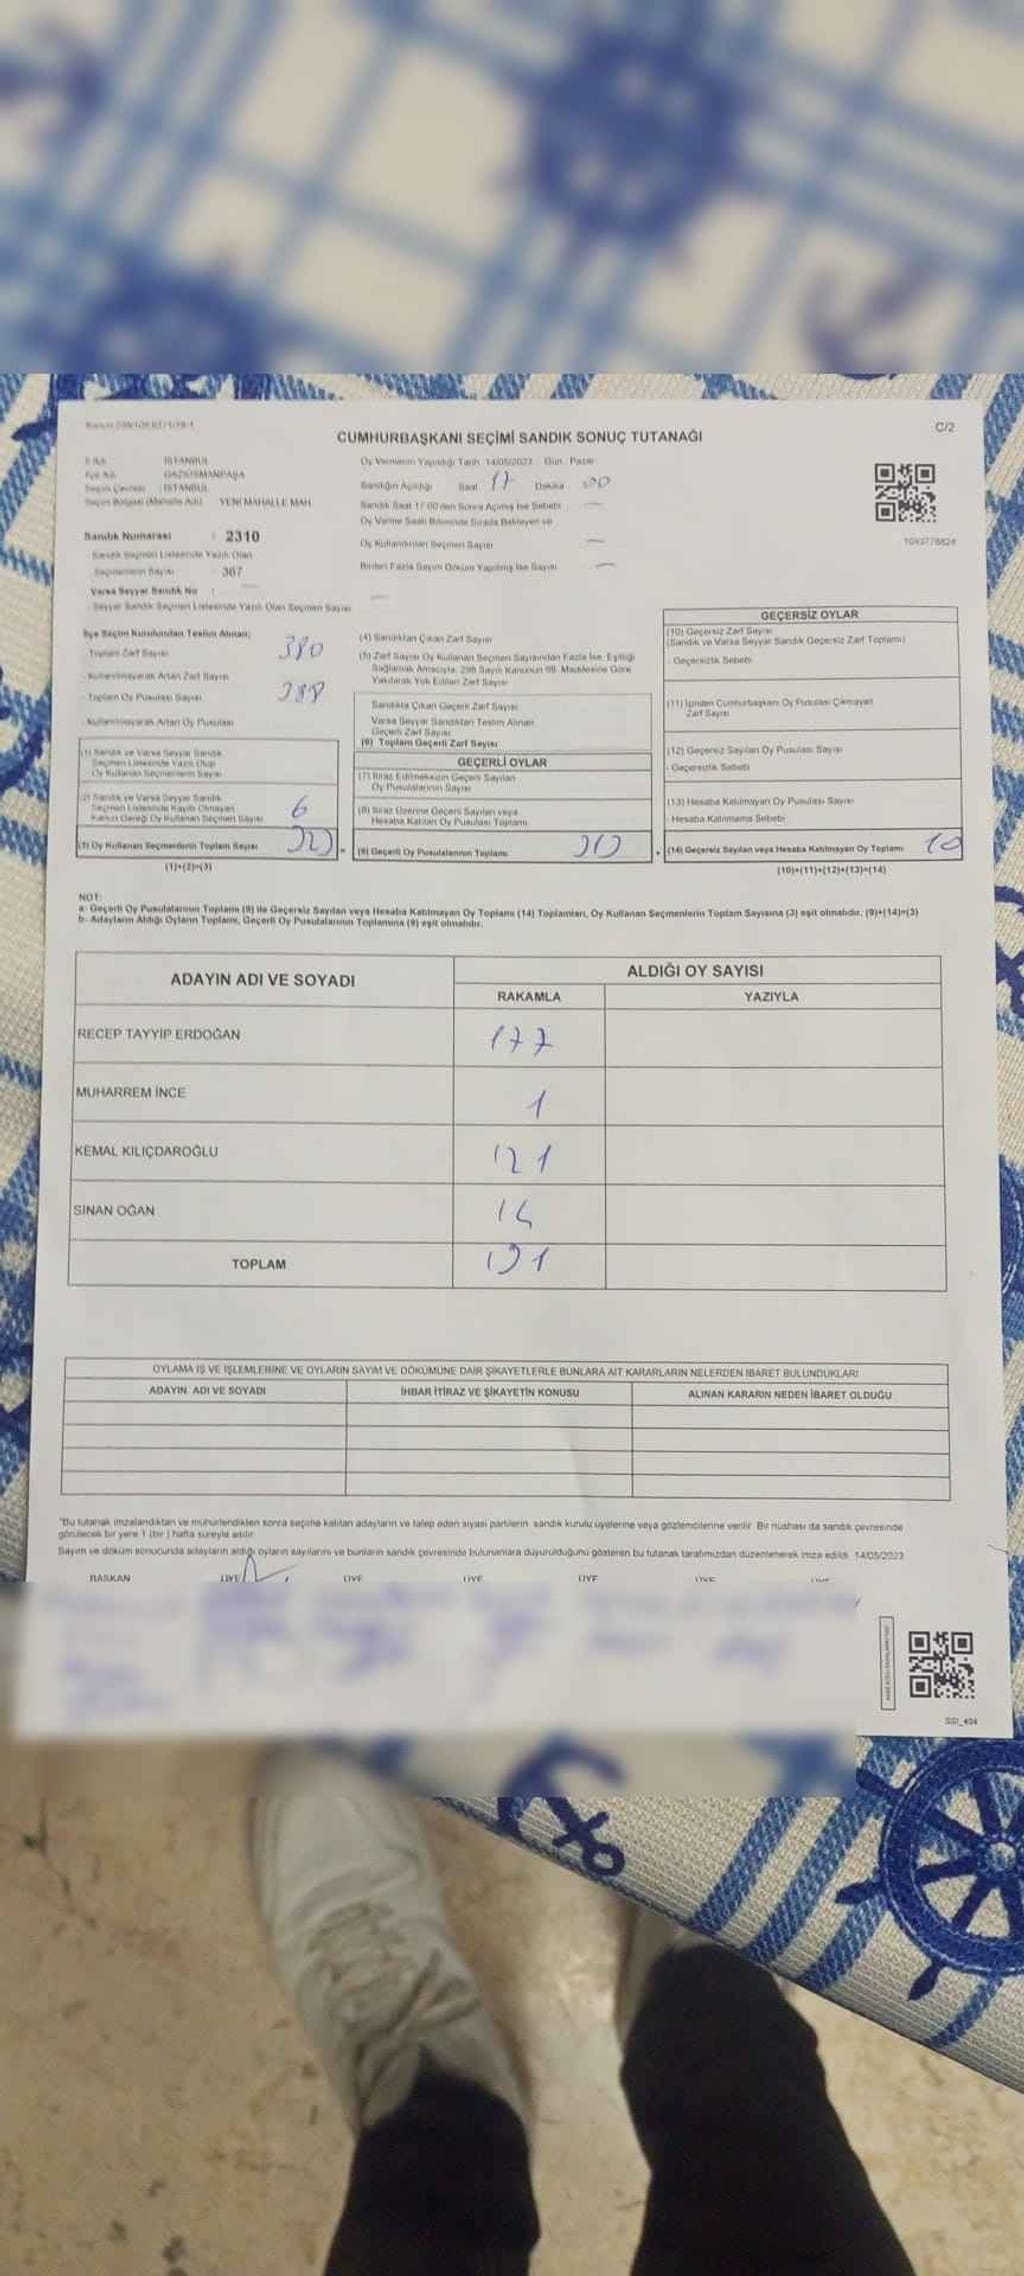 C/2
CUMHURBAŞKANI SEÇİMİ SANDIK SONUÇ TUTANAĞI
İli Adı : İSTANBUL
İlçe Adı : GAZİOSMANPAŞA
Seçim Çevresi : İSTANBUL
Seçim Bölgesi (Mahalle Adı) : YENİ MAHALLE MAH.
Sandık Numarası : 2310
Sandık Seçmen Listesinde Yazılı Olan
Seçmenlerin Sayısı : 367
Varsa Seyyar Sandık No :
Seyyar Sandık Seçmen Listesinde Yazılı Olan Seçmen Sayısı
Oy Vermenin Yapıldığı Tarih : 14/05/2023 Gün : Pazar
Sandığın Açıldığı Saat 17 Dakika 00
Sandık Saat 17:00'den Sonra Açılmış İse Sebebi
Oy Verme Saati Bitiminde Sırada Bekleyen ve
Oy Kullandırılan Seçmen Sayısı
Birden Fazla Sayım Döküm Yapılmış İse Sayısı
1093778824
İlçe Seçim Kurulundan Teslim Alınan;
Toplam Zarf Sayısı 380
Kullanılmayarak Artan Zarf Sayısı
Toplam Oy Pusulası Sayısı
Kullanılmayarak Artan Oy Pusulası
(1) Sandık ve Varsa Seyyar Sandık
Seçmen Listesinde Yazılı Olup
Oy Kullanan Seçmenlerin Sayısı
(2) Sandık ve Varsa Seyyar Sandık
Seçmen Listesinde Kayıtlı Olmayan
Kanun Gereği Oy Kullanan Seçmen Sayısı 6
(3) Oy Kullanan Seçmenlerin Toplam Sayısı
(1)+(2)=(3)
(4) Sandıktan Çıkan Zarf Sayısı
(5) Zarf Sayısı Oy Kullanan Seçmen Sayısından Fazla İse, Eşitliği
Sağlamak Amacıyla, 298 Sayılı Kanunun 98. Maddesine Göre
Yakılarak Yok Edilen Zarf Sayısı
Sandıkta Çıkan Geçerli Zarf Sayısı
Varsa Seyyar Sandıktan Teslim Alınan
Geçerli Zarf Sayısı
(6) Toplam Geçerli Zarf Sayısı
GEÇERLİ OYLAR
(7) İtiraz Edilmeksizin Geçerli Sayılan
Oy Pusulalarının Sayısı
(8) İtiraz Üzerine Geçerli Sayılan veya
Hesaba Katılan Oy Pusulası Toplamı
= (9) Geçerli Oy Pusulalarının Toplamı 313
GEÇERSİZ OYLAR
(10) Geçersiz Zarf Sayısı
(Sandık ve Varsa Seyyar Sandık Geçersiz Zarf Toplamı)
- Geçersizlik Sebebi
(11) İçinden Cumhurbaşkanı Oy Pusulası Çıkmayan
Zarf Sayısı
(12) Geçersiz Sayılan Oy Pusulası Sayısı
- Geçersizlik Sebebi
(13) Hesaba Katılmayan Oy Pusulası Sayısı
- Hesaba Katılmama Sebebi
+ (14) Geçersiz Sayılan veya Hesaba Katılmayan Oy Toplamı 10
(10)+(11)+(12)+(13)=(14)
NOT:
a- Geçerli Oy Pusulalarının Toplamı (9) ile Geçersiz Sayılan veya Hesaba Katılmayan Oy Toplamı (14) Toplamları, Oy Kullanan Seçmenlerin Toplam Sayısına (3) eşit olmalıdır. (9)+(14)=(3)
b- Adayların Aldığı Oyların Toplamı, Geçerli Oy Pusulalarının Toplamına (9) eşit olmalıdır.
ADAYIN ADI VE SOYADI
ALDIĞI OY SAYISI
RAKAMLA YAZIYLA
RECEP TAYYİP ERDOĞAN 177
MUHARREM İNCE 1
KEMAL KILIÇDAROĞLU 121
SİNAN OĞAN 14
TOPLAM
OYLAMA İŞ VE İŞLEMLERİNE VE OYLARIN SAYIM VE DÖKÜMÜNE DAİR ŞİKAYETLERLE BUNLARA AİT KARARLARIN NELERDEN İBARET BULUNDUKLARI
ADAYIN ADI VE SOYADI İHBAR İTİRAZ VE ŞİKAYETİN KONUSU ALINAN KARARIN NEDEN İBARET OLDUĞU
"Bu tutanak imzalandıktan ve mühürlendikten sonra seçime katılan adayların ve talep eden siyasi partilerin sandık kurulu üyelerine veya gözlemcilerine verilir. Bir nüshası da sandık çevresinde
görülecek bir yere 1 (bir) hafta süreyle asılır.
Sayım ve döküm sonucunda adayların aldığı oyların sayılarını ve bunların sandık çevresinde bulunanlara duyurulduğunu gösteren bu tutanak tarafımızdan düzenlenerek imza edildi. 14/05/2023
BAŞKAN ÜYE ÜYE ÜYE ÜYE ÜYE ÜYE
SSI_404